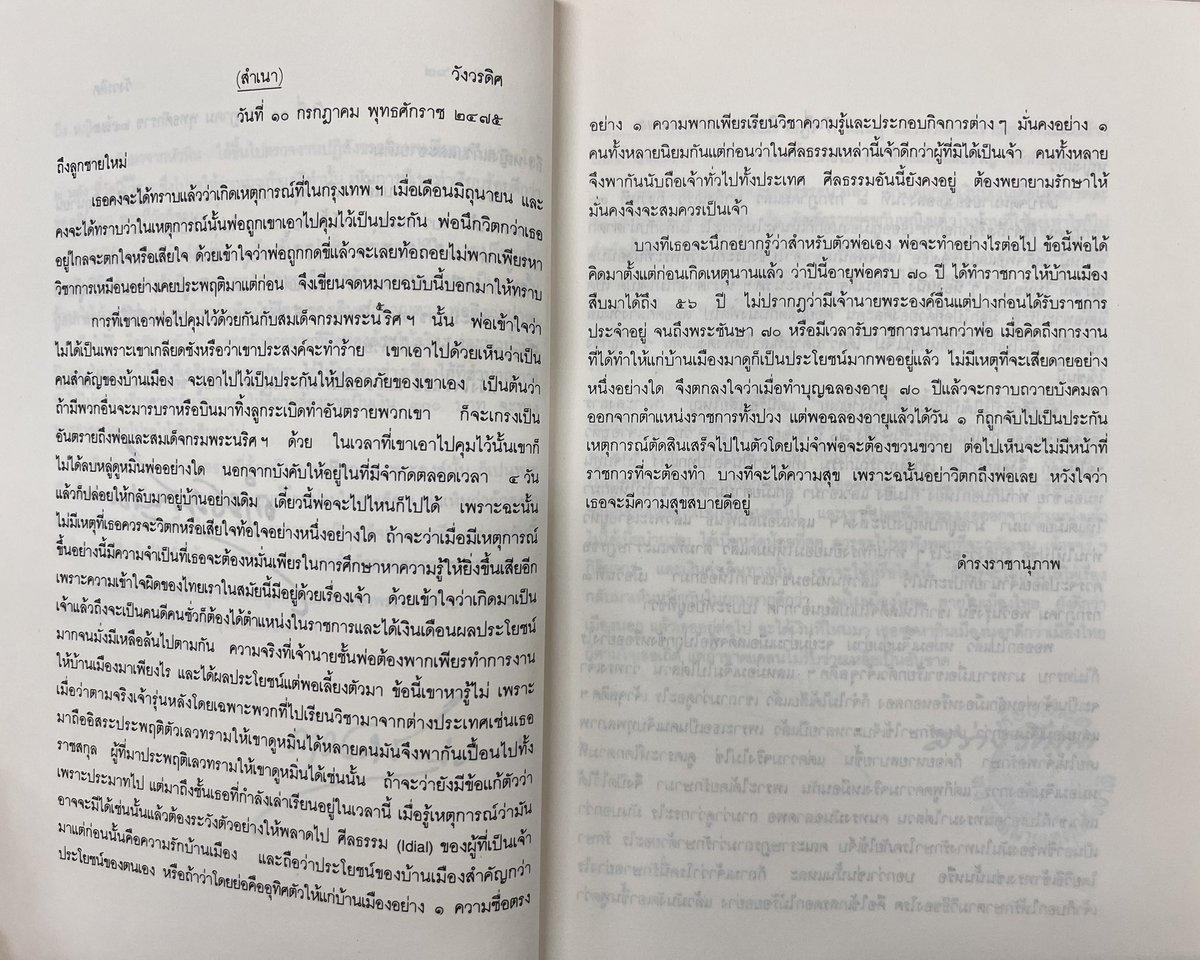 (สำเนา) วังวรดิศ
วันที่ ๑๐ กรกฎาคม พุทธศักราช ๒๔๗๕
ถึงลูกชายใหม่
เธอคงจะได้ทราบแล้วว่าเกิดเหตุการณ์ที่ในกรุงเทพ ฯ เมื่อเดือนมิถุนายน และ
คงจะได้ทราบว่าในเหตุการณ์นั้นพ่อถูกเขาเอาไปคุมไว้เป็นประกัน พ่อนึกวิตกว่าเธอ
อยู่ไกลจะตกใจหรือเสียใจ ด้วยเข้าใจว่าพ่อถูกกดขี่แล้วจะเลยท้อถอยไม่พากเพียรหา
วิชาการเหมือนอย่างเคยประพฤติมาแต่ก่อน จึงเขียนจดหมายฉบับนี้บอกมาให้ทราบ
การที่เขาเอาพ่อไปคุมไว้ด้วยกันกับสมเด็จกรมพระนริศ ฯ นั้น พ่อเข้าใจว่า
ไม่ได้เป็นเพราะเขาเกลียดชังหรือว่าเขาประสงค์จะทำร้าย เขาเอาไปด้วยเห็นว่าเป็น
คนสำคัญของบ้านเมือง จะเอาไปไว้เป็นประกันให้ปลอดภัยของเขาเอง เป็นต้นว่า
ถ้ามีพวกอื่นจะมารบราหรือบินมาทิ้งลูกระเบิดทำอันตรายพวกเขา ก็จะเกรงเป็น
อันตรายถึงพ่อและสมเด็จกรมพระนริศ ฯ ด้วย ในเวลาที่เขาเอาไปคุมไว้นั้นเขาก็
ไม่ได้ลบหลู่ดูหมิ่นพ่ออย่างใด นอกจากบังคับให้อยู่ในที่มีจำกัดตลอดเวลา ๔ วัน
แล้วก็ปล่อยให้กลับมาอยู่บ้านอย่างเดิม เดี๋ยวนี้พ่อจะไปไหนก็ไปได้ เพราะฉะนั้น
ไม่มีเหตุที่เธอควรจะวิตกหรือเสียใจท้อใจอย่างหนึ่งอย่างใด ถ้าจะว่าเมื่อมีเหตุการณ์
ขึ้นอย่างนี้มีความจำเป็นที่เธอจะต้องหมั่นเพียรในการศึกษาหาความรู้ให้ยิ่งขึ้นเสียอีก
เพราะความเข้าใจผิดของไทยเราในสมัยนี้มีอยู่ด้วยเรื่องเจ้า ด้วยเข้าใจว่าเกิดมาเป็น
เจ้าแล้วถึงจะเป็นคนดีคนชั่วก็ต้องได้ตำแหน่งในราชการและได้เงินเดือนผลประโยชน์
มากจนมั่งมีเหลือล้นไปตามกัน ความจริงที่เจ้านายชั้นพ่อต้องพากเพียรทำการงาน
ให้บ้านเมืองมาเพียงไร และได้ผลประโยชน์แต่พอเลี้ยงตัวมา ข้อนี้เขาหารู้ไม่ เพราะ
เมื่อว่าตามจริงเจ้ารุ่นหลังโดยเฉพาะพวกที่ไปเรียนวิชามาจากต่างประเทศเช่นเธอ
มาถืออิสระประพฤติตัวเลวทรามให้เขาดูหมิ่นได้หลายคนมันจึงพากันเปื้อนไปทั้ง
ราชสกุล ผู้ที่มาประพฤติเลวทรามให้เขาดูหมิ่นได้เช่นนั้น ถ้าจะว่ายังมีข้อแก้ตัวว่า
เพราะประมาทไป แต่มาถึงชั้นเธอที่กำลังเล่าเรียนอยู่ในเวลานี้ เมื่อรู้เหตุการณ์ว่ามัน
อาจจะมีได้เช่นนั้นแล้วต้องระวังตัวอย่าให้พลาดไป ศีลธรรม (Idial) ของผู้ที่เป็นเจ้า
มาแต่ก่อนนั้นคือความรักบ้านเมือง และถือว่าประโยชน์ของบ้านเมืองสำคัญกว่า
ประโยชน์ของตนเอง หรือถ้าว่าโดยย่อคืออุทิศตัวให้แก่บ้านเมืองอย่าง ๑ ความซื่อตรง
อย่าง ๑ ความพากเพียรเรียนวิชาความรู้และประกอบกิจการต่าง ๆ มั่นคงอย่าง ๑
คนทั้งหลายนิยมกันแต่ก่อนว่าในศีลธรรมเหล่านี้เจ้าดีกว่าผู้ที่มิได้เป็นเจ้า คนทั้งหลาย
จึงพากันนับถือเจ้าทั่วไปทั้งประเทศ ศีลธรรมอันนี้ยังคงอยู่ ต้องพยายามรักษาให้
มั่นคงจึงจะสมควรเป็นเจ้า
บางทีเธอจะนึกอยากรู้ว่าสำหรับตัวพ่อเอง พ่อจะทำอย่างไรต่อไป ข้อนี้พ่อได้
คิดมาตั้งแต่ก่อนเกิดเหตุนานแล้ว ว่าปีนี้อายุพ่อครบ ๗๐ ปี ได้ทำราชการให้บ้านเมือง
สืบมาได้ถึง ๕๖ ปี ไม่ปรากฏว่ามีเจ้านายพระองค์อื่นแต่ปางก่อนได้รับราชการ
ประจำอยู่ จนถึงพระชันษา ๗๐ หรือมีเวลารับราชการนานกว่าพ่อ เมื่อคิดถึงการงาน
ที่ได้ทำให้แก่บ้านเมืองมาดูก็เป็นประโยชน์มากพออยู่แล้ว ไม่มีเหตุที่จะเสียดายอย่าง
หนึ่งอย่างใด จึงตกลงใจว่าเมื่อทำบุญฉลองอายุ ๗๐ ปีแล้วจะกราบถวายบังคมลา
ออกจากตำแหน่งราชการทั้งปวง แต่พอฉลองอายุแล้วได้วัน ๑ ก็ถูกจับไปเป็นประกัน
เหตุการณ์ตัดสินเสร็จไปในตัวโดยไม่จำพ่อจะต้องขวนขวาย ต่อไปเห็นจะไม่มีหน้าที่
ราชการที่จะต้องทำ บางทีจะได้ความสุข เพราะฉนั้นอย่าวิตกถึงพ่อเลย หวังใจว่า
เธอจะมีความสุขสบายดีอยู่
ดำรงราชานุภาพ